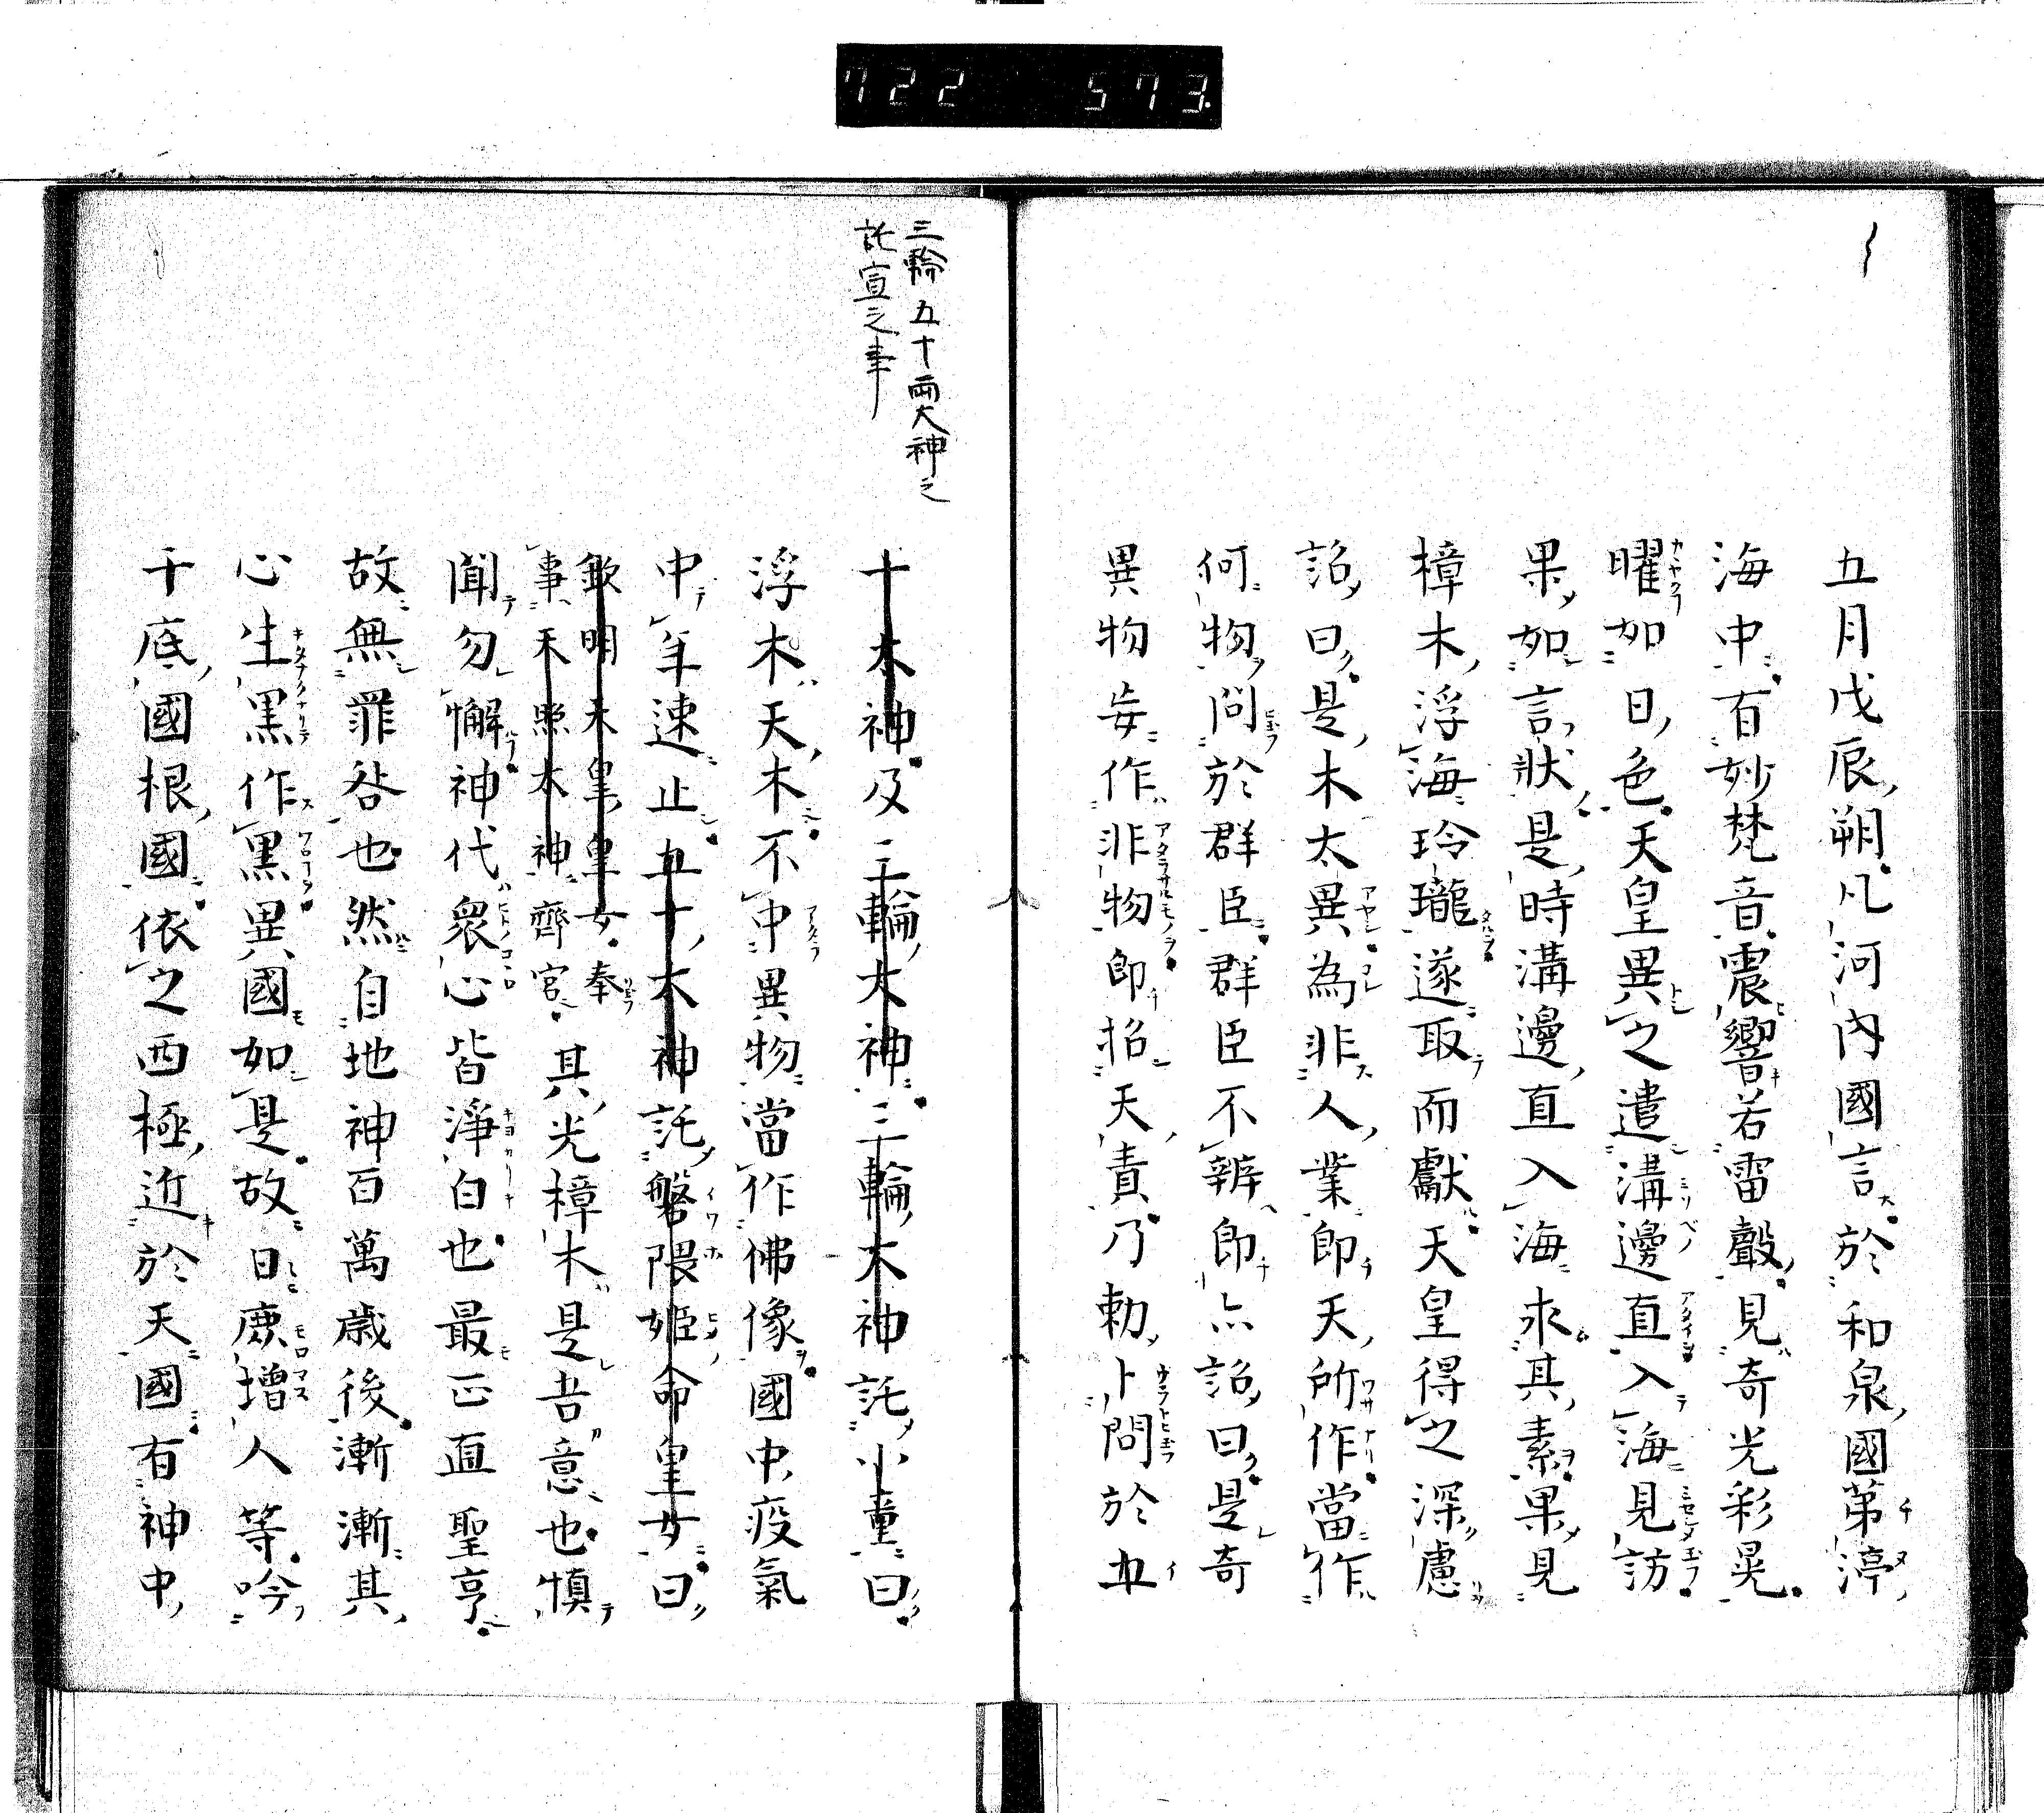 722 573.
五月戊辰朔凡河内國言於和泉國第渟
海中有妙梵音震響若雷聲見奇光彩晃
曜如日色天皇異之遣溝邊直入海見訪
果如言狀是時溝邊直入海求其素果見
樟木浮海玲瓏遂取而獻天皇得之深慮
詔曰是木太異為非人業即天所作當作
何物問於群臣群臣不辨即亦詔曰是奇
異物妄作非物即招天責乃勅卜問於五
三輪五十兩大神之
託宣之事
十大神及三輪大神三輪大神託小童曰
浮木天木不中異物當作佛像國中疫氣
中年速止五十大神託磐隈姫命皇女曰
欽明天皇皇女奉
事天照太神齊宮
其光樟木是吾意也慎
聞勿懈神代衆心皆淨白也最正直聖亨
故無罪咎也然自地神百萬歳後漸漸其
心生黒作黒異國如是故日麁增人等吟
千底國根國依之西極近於天國有神中